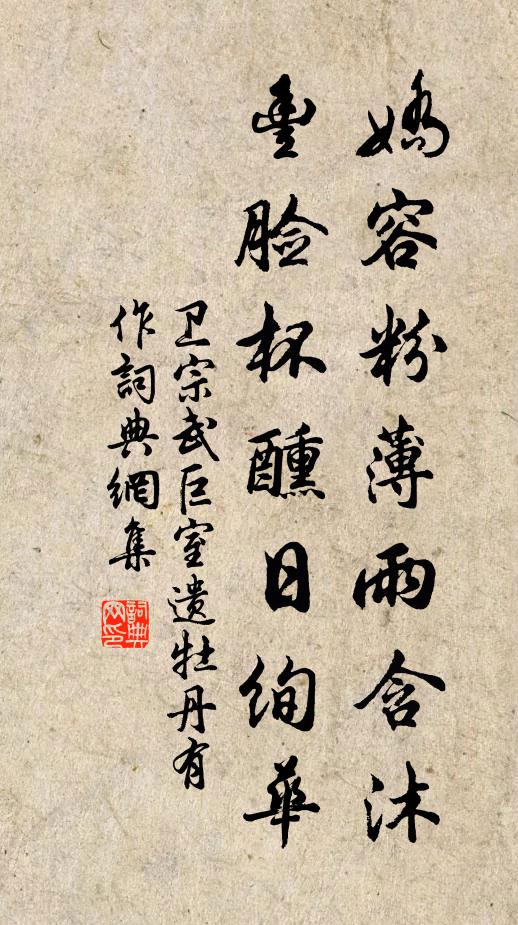 娇容粉薄雨含沐
丰脸杯醺日绚华
卫宗武巨室遗牡丹有
作词典网集
词典网印